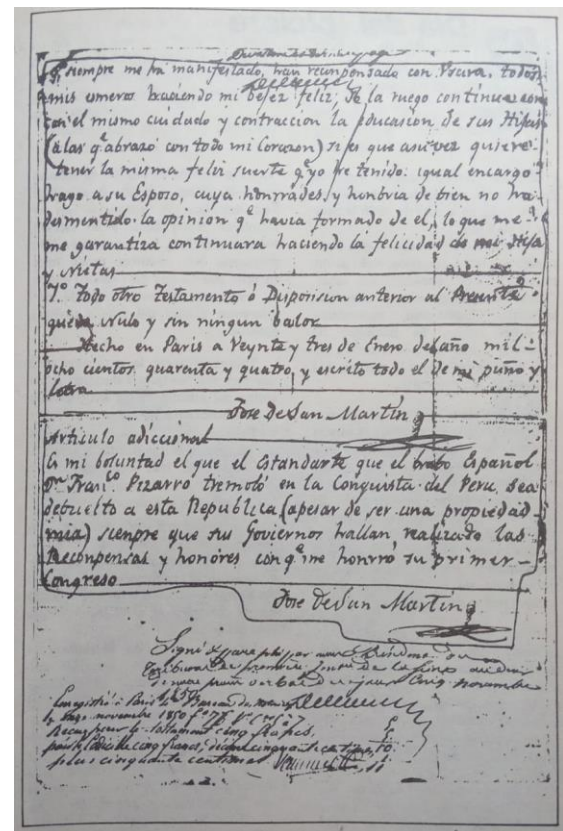 q.e siempre me ha manifestado, han recompensado con Usura, todos
mis esmeros haciendo mi bejez feliz; Yo la ruego continue con
con el mismo cuidado y contraccion la educasion de sus Hijas
(alas q.e abrazo con todo mi Corazon) si es que asu vez quiere
tener la misma feliz suerte q.e yo he tenido: igual encargo
hago a su Esposo, cuya honrrades, y hombria de bien no ha
desmentido la opinion q.e havia formado de el, lo que me
me garantiza continuara haciendo la felicidad de mi Hija
y Nietas
7.o Todo otro Testamento ó Disposision anterior al Presente
queda Nulo y sin ningun balor
Hecho en Paris a Veynte y tres de Enero del año mil
ocho cientos quarenta y quatro, y escrito todo el de mi puño y
letra
Jose De San Martin
Articulo adiccional
Es mi boluntad el que el Estandarte que el brabo Español
D.n Fran.co Pizarro tremoló en la Conquista del Peru sea
debuelto a esta Republica (apesar de ser una propiedad
mia) siempre que sus Goviernos hallan realizado las
Recompensas y honores con q.e me honrró su primer
Congreso
Jose De San Martin
novembre
Enregistré à Paris
novembre 1850
Reçu pour le testament cinq francs
plus cinquante centimes